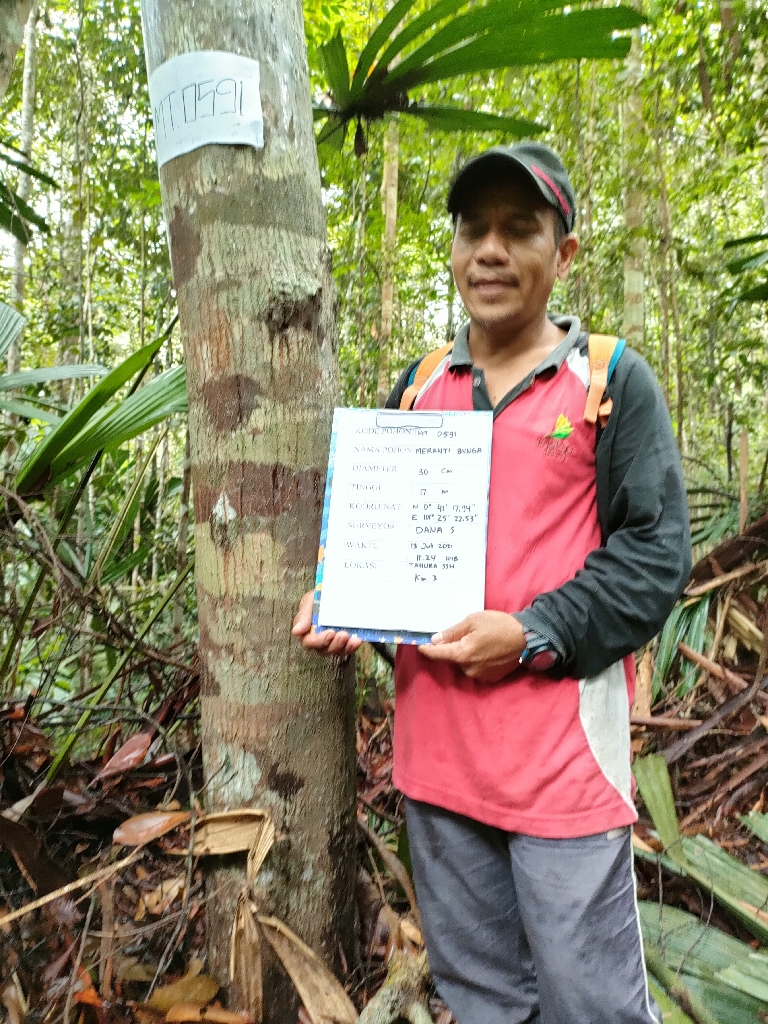 MT 0591
KODE POHON MT 0591
NAMA POHON MERANTI BUNGA
DIAMETER 30 cm
TINGGI 17 M
KOORDINAT N 0° 41' 17,94"
E 101° 25' 22.53"
SURVEYOR DANA S
WAKTU 13 Juli 2021
11.24 WIB
LOKASI TAHURA SSH
Km 3